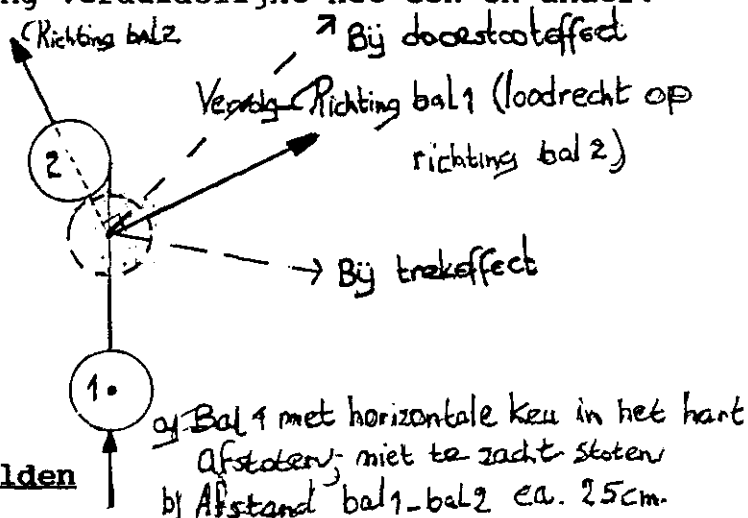 ng verduidelijkt het een en ander.
Richting bal 2
Bij doorstooteffect
Vervolg-Richting bal 1 (loodrecht op
richting bal 2)
2
Bij trekeffect
1
a) Bal 1 met horizontale keu in het hart
afstoten; niet te zacht stoten
lden
b) Afstand bal 1-bal 2 ca. 25cm.